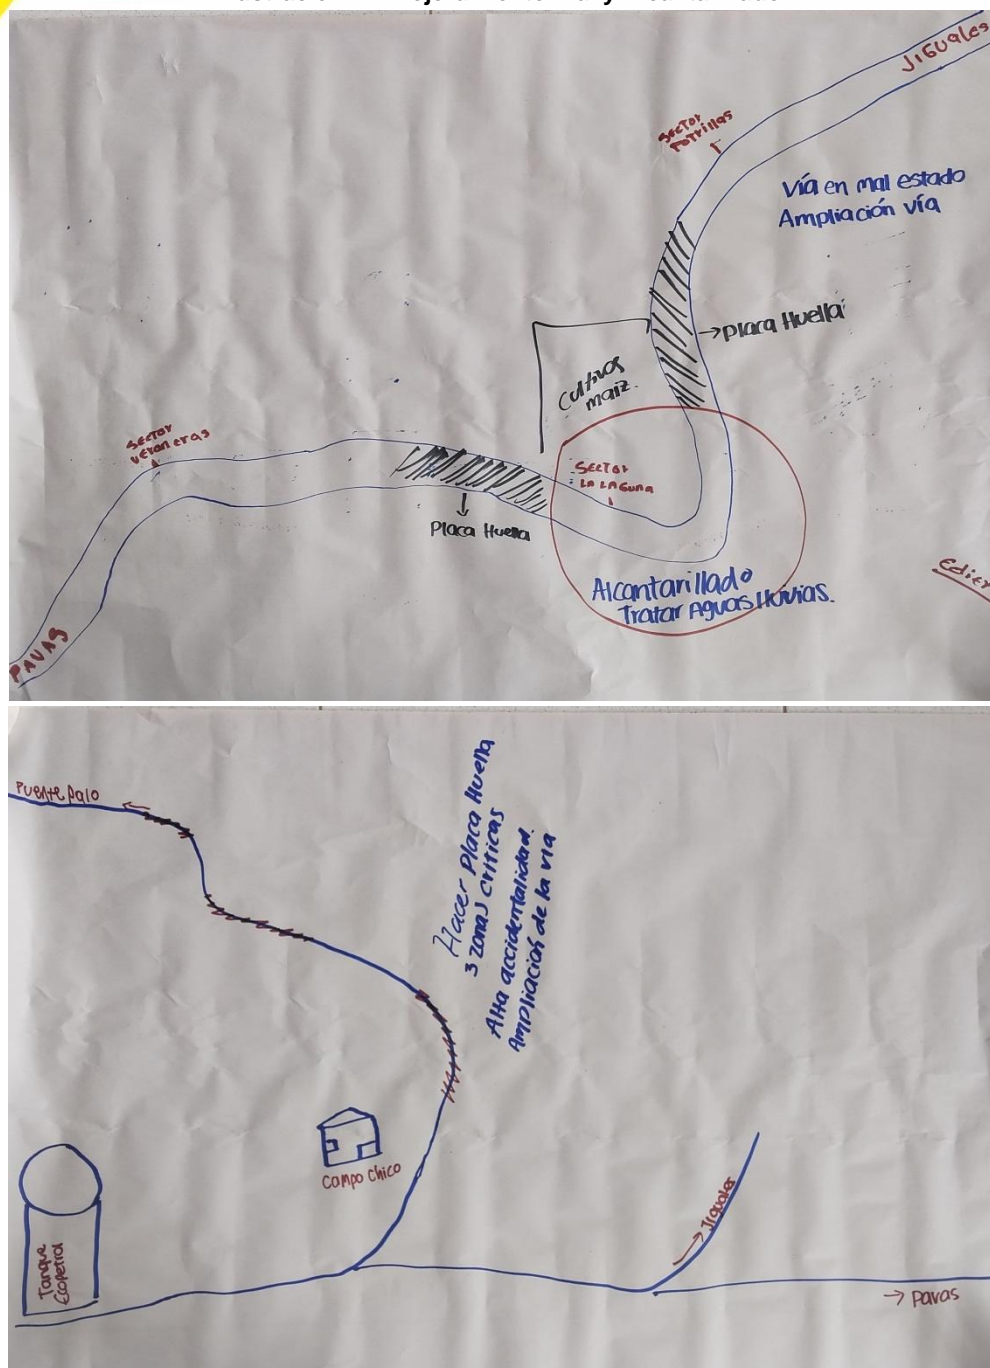 JIGUALES
Sector
Potrillas
Vía en mal estado
Ampliación vía
Placa Huella
Cultivos
maiz.
Sector
Veraneras
Sector
La Laguna
Placa Huella
Alcantarillado
Tratar Aguas lluvias.
Edier
PAVAS
Puente palo
Hacer Placa Huella
3 zonas criticas
Alta accidentalidad.
Ampliación de la via
Campo Chico
Tanque
Ecopetrol
Jiguales
Pavas